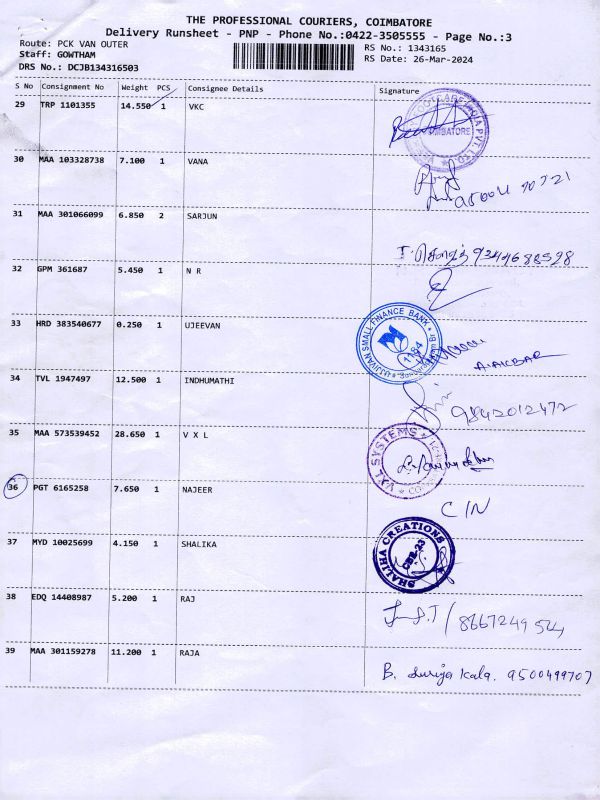 THE PROFESSIONAL COURIERS, COIMBATORE
Delivery Runsheet - PNP - Phone No.:0422-3505555 - Page No.:3
Route: PCK VAN OUTER
RS No.: 1343165
Staff: GOWTHAM
RS Date: 26-Mar-2024
DRS No.: DCJB134316503
S No Consignment No Weight PCS Consignee Details Signature
29 TRP 1101355 14.550 1 VKC
COIMBATORE
30 MAA 103328738 7.100 1 VANA
31 MAA 301066099 6.850 2 SARJUN
9344688528
32 GPM 361687 5.450 1 N R
33 HRD 383540677 0.250 1 UJEEVAN
UJJIVAN SMALL FINANCE BANK
1184
A. AKBAR
34 TVL 1947497 12.500 1 INDHUMATHI
9842012472
35 MAA 573539452 28.650 1 V X L
VXL SYSTEMS
36 PGT 6165258 7.650 1 NAJEER
C/N
37 MYD 10025699 4.150 1 SHALIKA
SHALIHA CREATIONS
CBE-23
38 EDQ 14408987 5.200 1 RAJ
39 MAA 301159278 11.200 1 RAJA
B. Suriya Kala. 9500499707